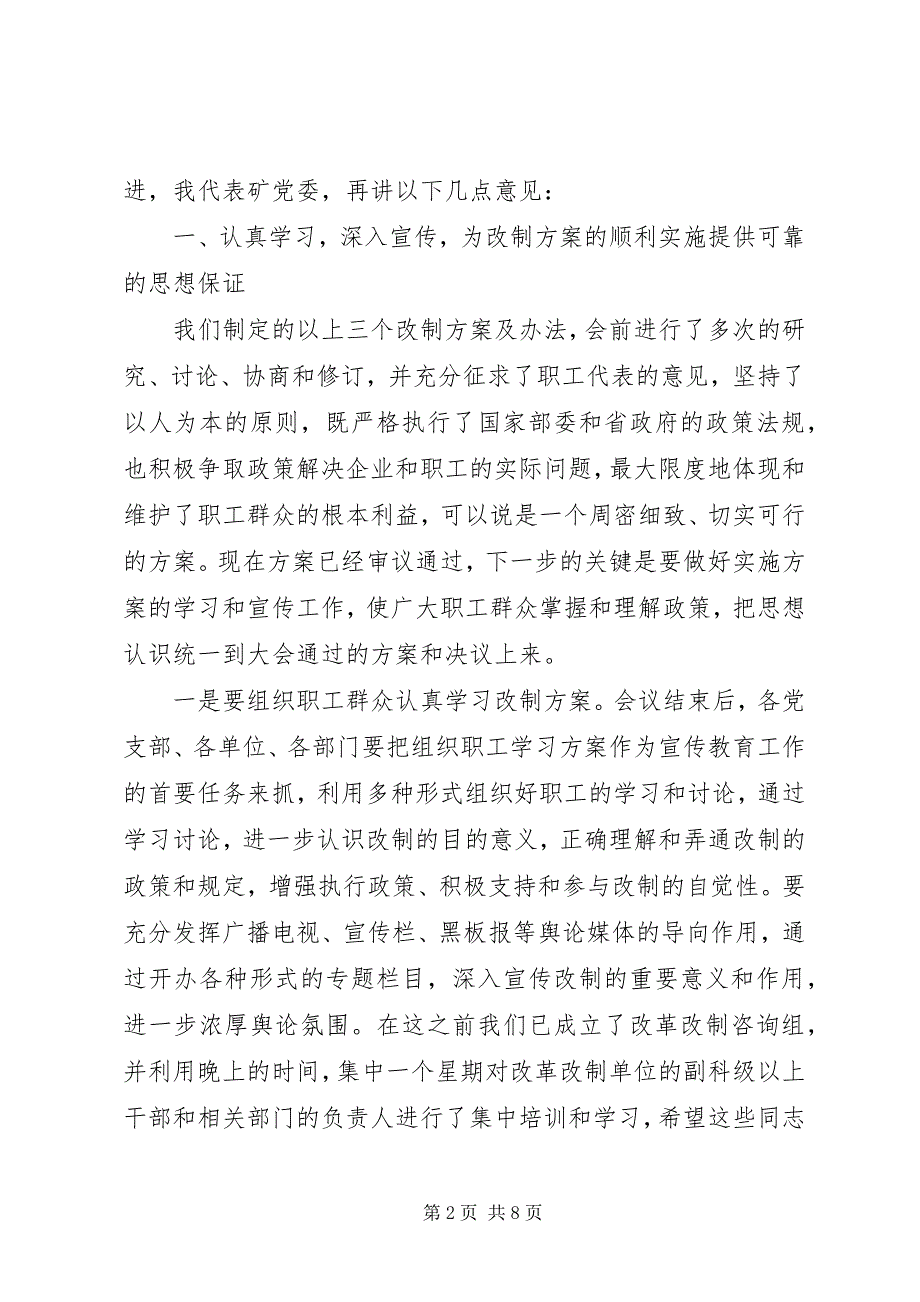 进，我代表矿党委，再讲以下几点意见：
一、认真学习，深入宣传，为改制方案的顺利实施提供可靠
的思想保证
我们制定的以上三个改制方案及办法，会前进行了多次的研
究、讨论、协商和修订，并充分征求了职工代表的意见，坚持了
以人为本的原则，既严格执行了国家部委和省政府的政策法规，
也积极争取政策解决企业和职工的实际问题，最大限度地体现和
维护了职工群众的根本利益，可以说是一个周密细致、切实可行
的方案。现在方案已经审议通过，下一步的关键是要做好实施方
案的学习和宣传工作，使广大职工群众掌握和理解政策，把思想
认识统一到大会通过的方案和决议上来。
一是要组织职工群众认真学习改制方案。会议结束后，各党
支部、各单位、各部门要把组织职工学习方案作为宣传教育工作
的首要任务来抓，利用多种形式组织好职工的学习和讨论，通过
学习讨论，进一步认识改制的目的意义，正确理解和弄通改制的
政策和规定，增强执行政策、积极支持和参与改制的自觉性。要
充分发挥广播电视、宣传栏、黑板报等舆论媒体的导向作用，通
过开办各种形式的专题栏目，深入宣传改制的重要意义和作用，
进一步浓厚舆论氛围。在这之前我们已成立了改革改制咨询组，
并利用晚上的时间，集中一个星期对改革改制单位的副科级以上
干部和相关部门的负责人进行了集中培训和学习，希望这些同志
第 2 页 共 8 页